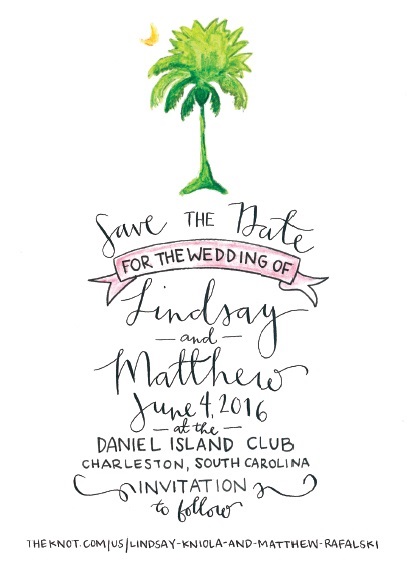 Save THE Date
FOR THE WEDDING OF
Lindsay
- and -
Matthew
June 4, 2016
- at the -
DANIEL ISLAND CLUB
CHARLESTON, SOUTH CAROLINA
INVITATION
to follow
THEKNOT.COM/US/LINDSAY-KNIOLA-AND-MATTHEW-RAFALSKI